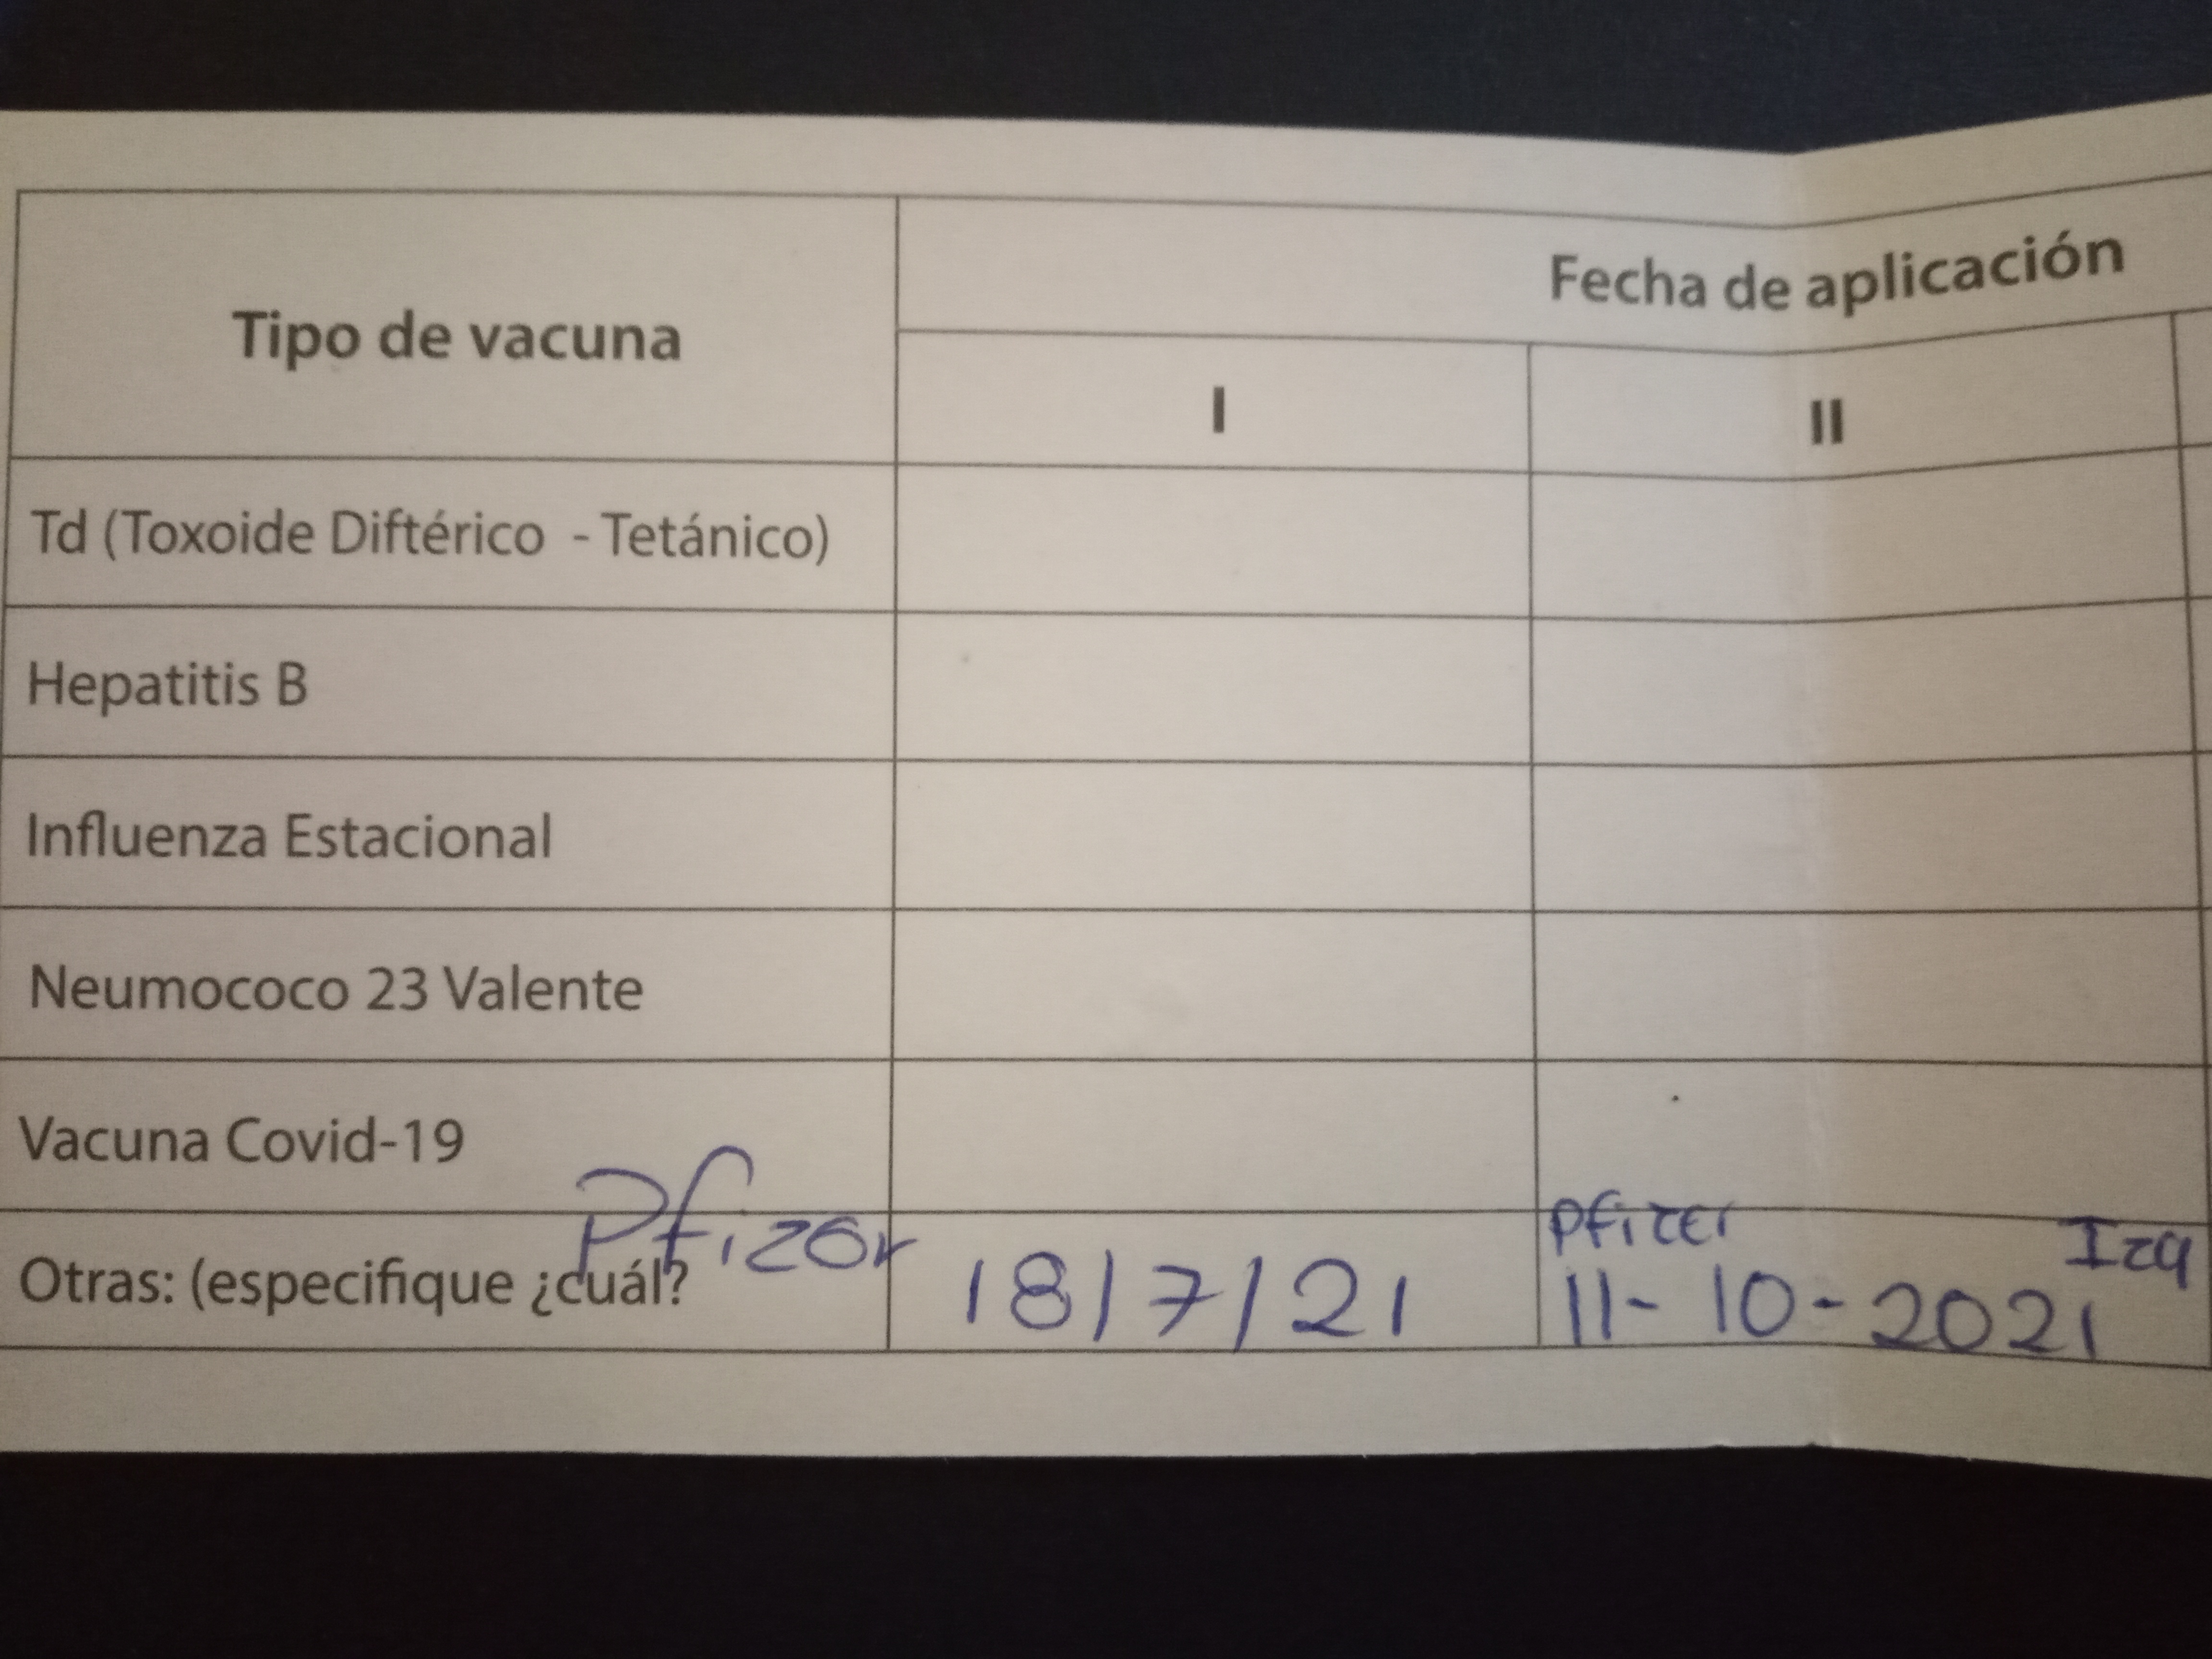 Tipo de vacuna
Fecha de aplicación
I
II
Td (Toxoide Diftérico - Tetánico)
Hepatitis B
Influenza Estacional
Neumococo 23 Valente
Vacuna Covid-19
Pfizer
Otras: (especifique ¿cuál?
18/7/21
Pfizer
Izq
11-10-2021